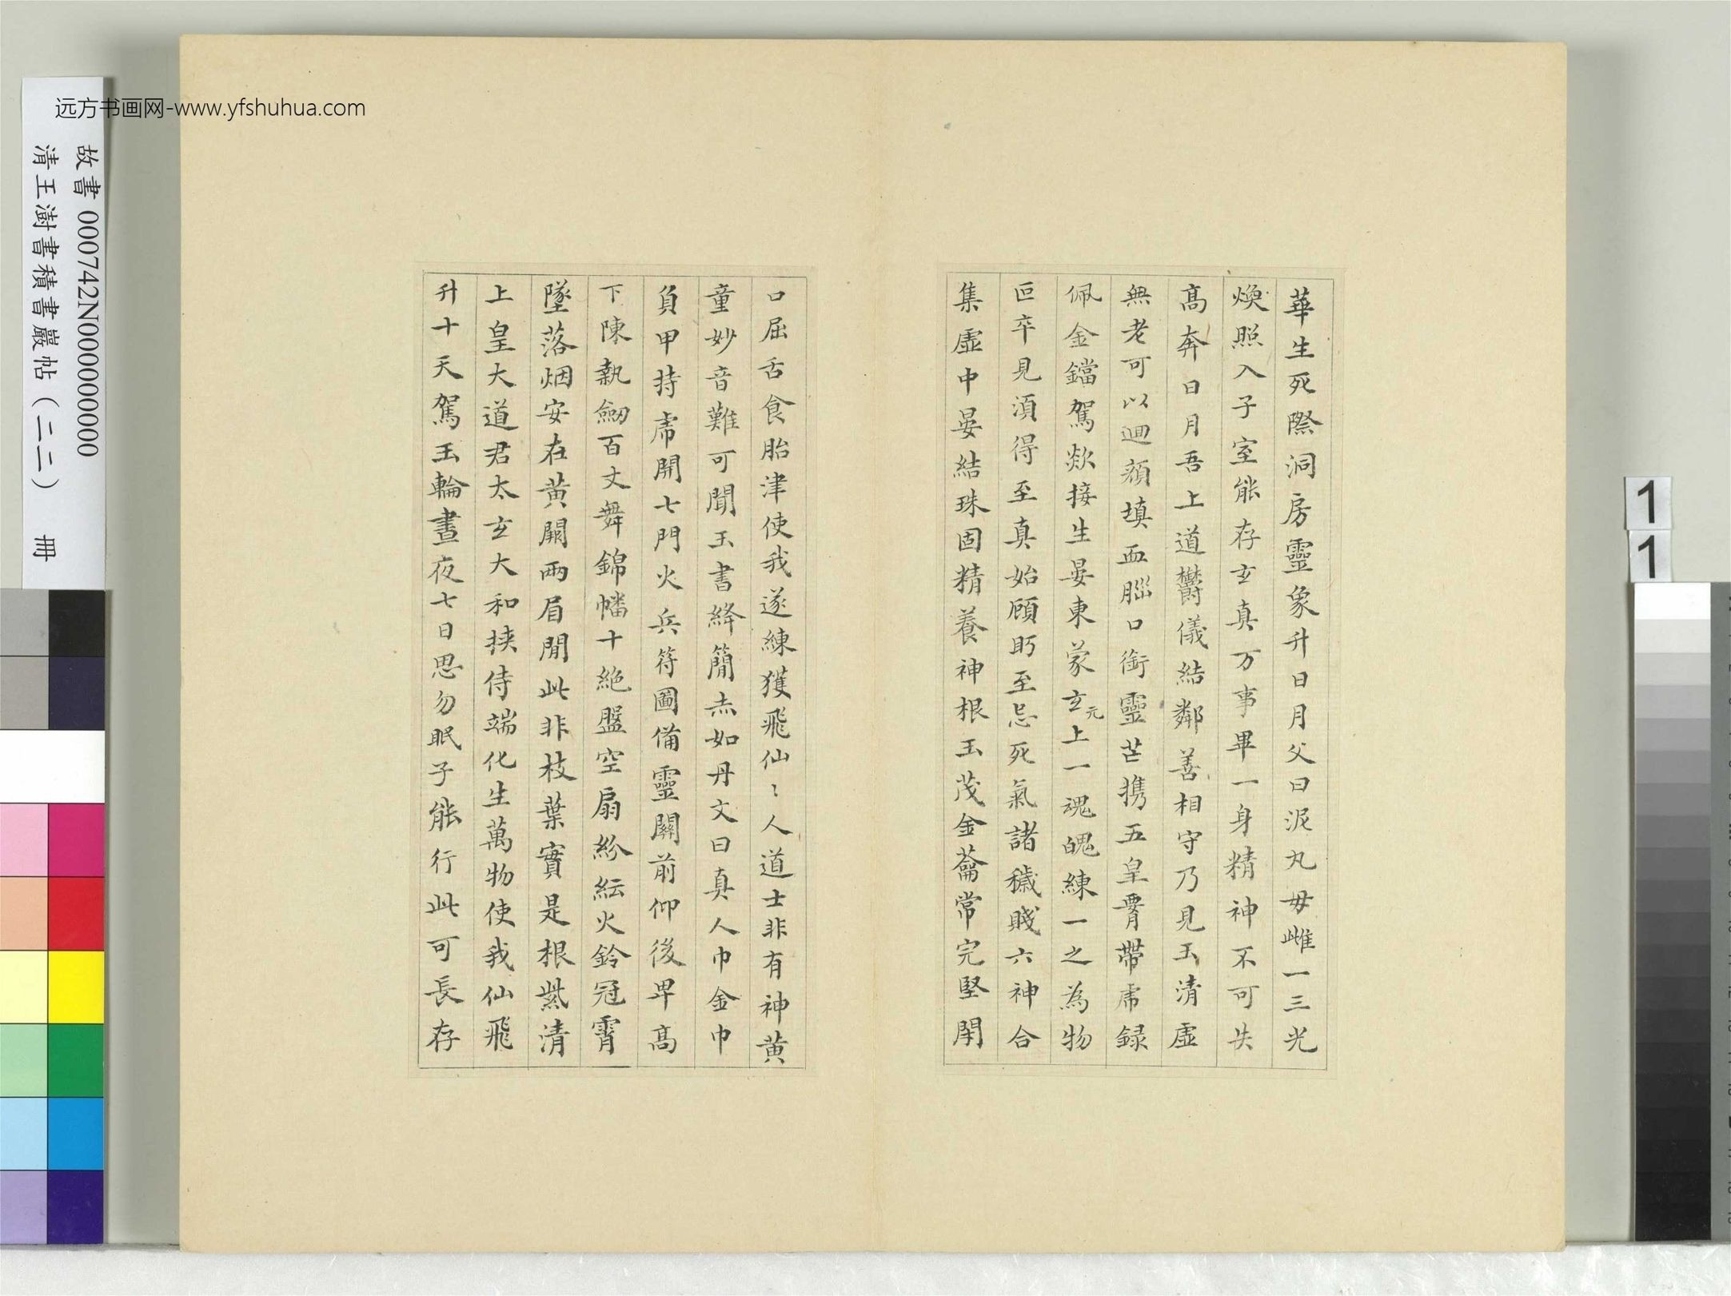 远方书画网-www.yfshuhua.com
故書 000742N000000000
清王澍書積書巖帖（二二） 冊
1
1
華生死際洞房靈象升日月父曰泥丸毋雌一三光
煥照入子室能存玄真万事畢一身精神不可失
髙奔日月吾上道欝儀結鄰善相守乃見玉清虛
無老可以迴顏填血腦口銜靈芒携五皇署帶虎録
佩金鐺駕歘接生晏東蒙玄元上一魂魄練一之為物
叵卒見湏得至真始顧眄至忌死氣諸穢賤六神合
集虛中晏結珠固精養神根玉茂金籥常完堅閇
口屈舌食胎津使我遂練獲飛仙〻人道士非有神黄
童妙音難可聞玉書絳簡赤如丹文曰真人巾金巾
負甲持虎開七門火兵符圖備靈關前仰後卑髙
下陳執劒百丈舞錦幡十絶盤空扇紛紜火鈴冠霄
墜落烟安在黄闕兩眉閒此非枝葉實是根紫清
上皇大道君太玄大和挟侍端化生萬物使我仙飛
升十天駕玉輪晝夜七日思勿眠子能行此可長存